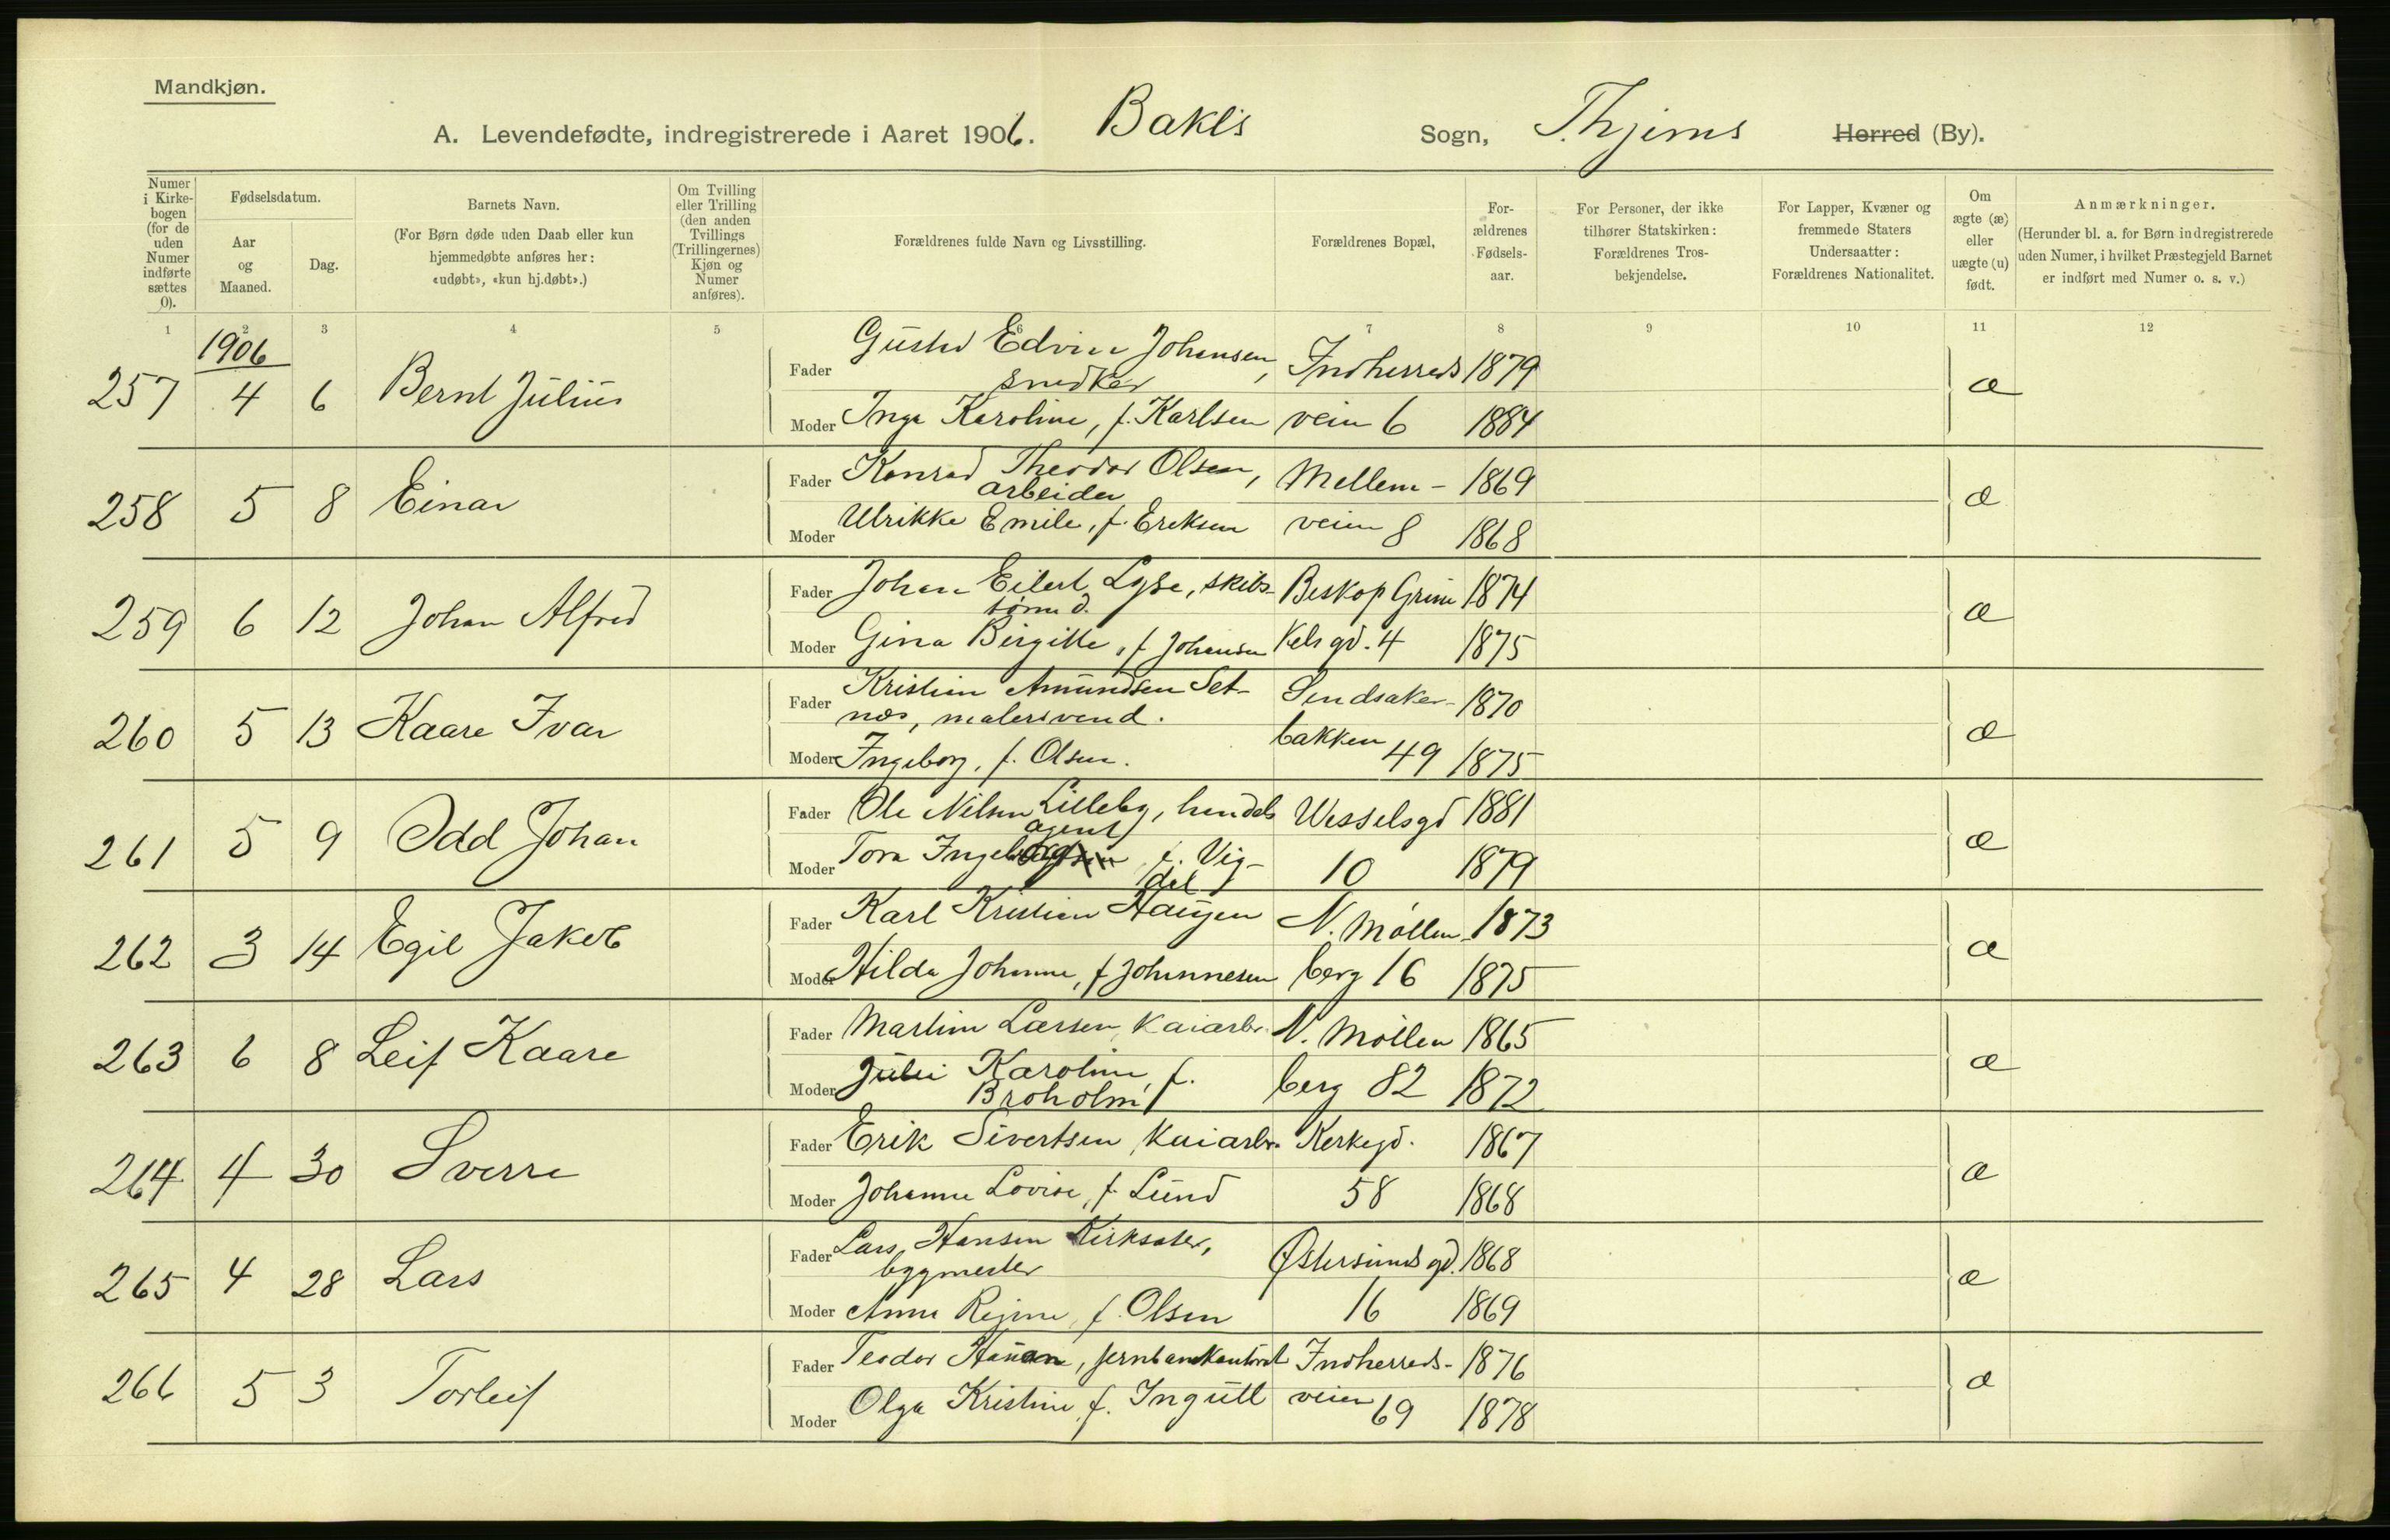 Mandkjøn.
A. Levendefødte, indregistrerede i Aaret 1906. Bakls Sogn, Thjems Herred (By).
Numer i Kirkebogen (for de uden Numer indførte sættes 0).
Fødselsdatum.
Aar og Maaned.
Dag.
Barnets Navn.
(For Børn døde uden Daab eller kun hjemmedøbte anføres her: «udøbt», «kun hj.døbt».)
Om Tvilling eller Trilling (den anden Tvillings (Trillingernes) Kjøn og Numer anføres).
Forældrenes fulde Navn og Livsstilling.
Forældrenes Bopæl,
Forældrenes Fødselsaar.
For Personer, der ikke tilhører Statskirken: Forældrenes Trosbekjendelse.
For Lapper, Kvæner og fremmede Staters Undersaatter: Forældrenes Nationalitet.
Om ægte (æ) eller uægte (u) født.
Anmærkninger.
(Herunder bl. a. for Børn indregistrerede uden Numer, i hvilket Præstegjeld Barnet er indført med Numer o. s. v.)
1 2 3 4 5 6 7 8 9 10 11 12
1906
257 4 6 Bernt Julius Fader Gustav Edvin Johansen, Indherreds 1879 æ
snedker
Moder Inga Karoline, f. Karlsen veien 6 1884
258 5 8 Einar Fader Konrad Theodor Olsen, Mellem- 1869 æ
arbeider
Moder Ulrikke Emile, f. Ereksen veien 8 1868
259 6 12 Johan Alfred Fader Johan Eilert Lyse, skibs- Beskop Grim 1874 æ
tømd.
Moder Gina Birgitte, f Johansen kels gd. 4 1875
260 5 13 Kaare Ivar Fader Kristian Amundsen Set- Sendsaker- 1870 æ
næs, malersvend. bakken
Moder Ingeborg, f. Olsen. 49 1875
261 5 9 Odd Johan Fader Ole Nilsen Lilleby, handels Wesselsgd 1881 æ
agent
Moder Tora Ingeborg f. Vig- 10 1879
dal
262 3 14 Egil Jakob Fader Karl Kristian Haugen N. Möllen- 1873 æ
Moder Hilda Johanne, f Johannesen berg 16 1875
263 6 8 Leif Kaare Fader Martin Larsen, Kaiarb. N. Möllen 1865 æ
Moder Julie Karoline, f. berg 82 1872
Broholm
264 4 30 Sverre Fader Erik Sivertsen, Kaiarb. Kerkegd. 1867 æ
Moder Johanne Lovise, f. Lund 58 1868
265 4 28 Lars Fader Lars Hansen Kirksæter, Østersunds gd. 1868 æ
bygmester
Moder Anna Regine, f. Olsen 16 1869
266 5 3 Torleif Fader Teodor Hanan, jernbankontrol Indherreds- 1876 æ
Moder Olga Kristine, f. Ingull veien 69 1878